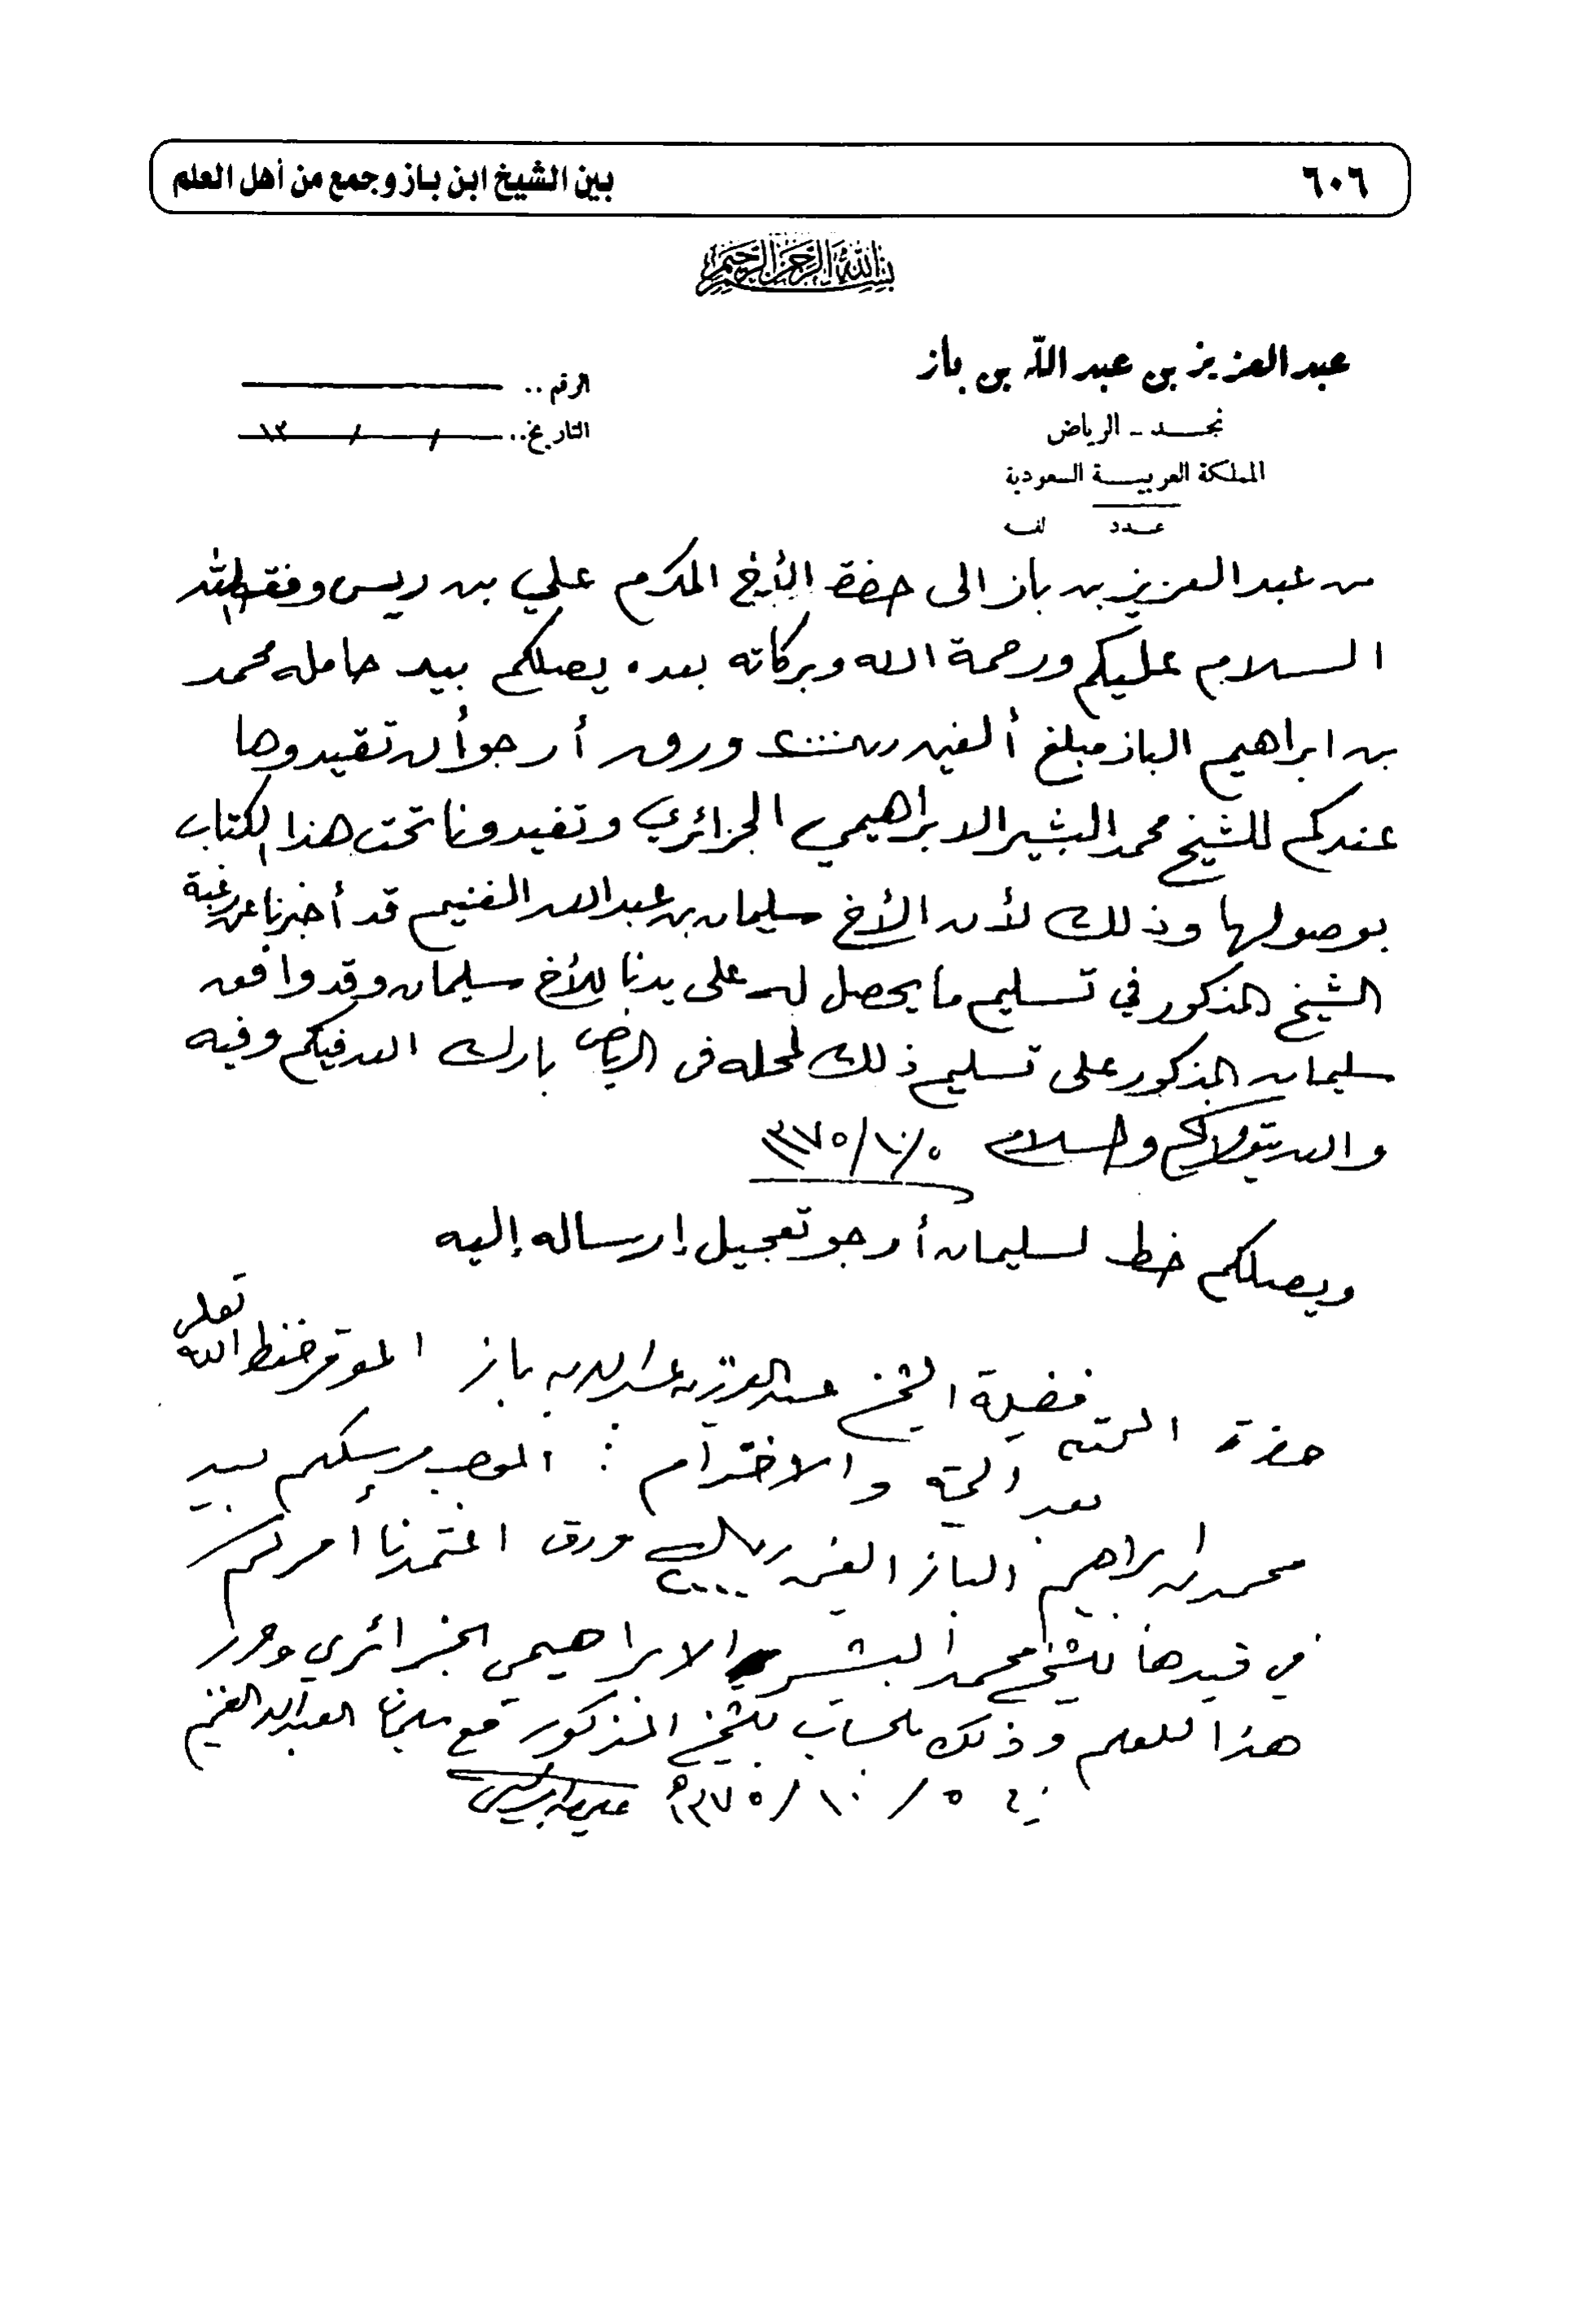 ٦٠٦
بين الشيخ ابن باز وجمع من أهل العلم
بسم الله الرحمن الرحيم
عبد العزيز بن عبد الله بن باز
نجد - الرياض
المملكة العربية السعودية
عدد لف
الرقم ..
التاريخ .. / / ١٣
من عبد العزيز بن باز الى حضرة الأخ المكرم علي بن ريس وفقه الله
السلام عليكم ورحمة الله وبركاته بعده يصلكم بيد حامله محمد
بن ابراهيم الباز مبلغ ألفين ريال ٢٠٠٠ ورق أرجو أن تقيدوها
عندكم للشيخ محمد البشير الابراهيمي الجزائري وتفيدونا تحت هذا الكتاب
بوصولها وذلك لأن الأخ سليمان بن عبد الله الغنيم قد أخبرنا عن رغبة
الشيخ المذكور في تسليم ما يحصل له على يدنا للأخ سليمان وقد وافق
سليمان المذكور على تسليم ذلك لمحله في الرياض بارك الله فيكم وفيه
والله يتولاكم والسلام ٥/١٠/١٣٧٥
ويصلكم خط لسليمان أرجو تعجيل إرساله إليه
حضرة فضيلة الشيخ عبد العزيز بن عبد الله بن باز الموقر حفظه الله تعالى
بعد التحية والاحترام : مرسلكم بيد
محمد بن ابراهيم الباز الفين ريال ٢٠٠٠ ورق اعتمدنا امركم
في قيدها للشيخ محمد البشير الابراهيمي الجزائري وحرر
هذا للعلم وذلك لحساب الشيخ المذكور مع سليمان العبد الله الغنيم
في ٥ / ١٠ / ١٣٧٥هـ